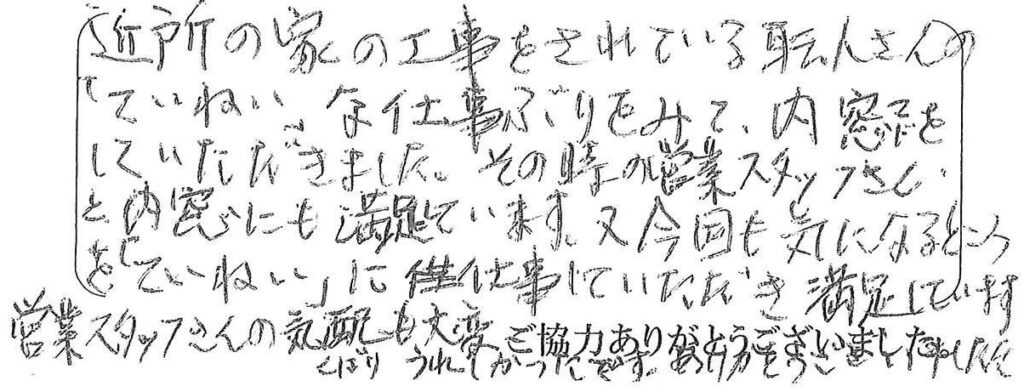 近所の家の工事をされている職人さんの
「ていねい」な仕事ぶりをみて、内窓を
していただきました。その時の営業スタッフさん
と内窓にも満足しています。又今回も気になるところ
を「ていねい」に仕事していただき満足しています
営業スタッフさんの気配も大変 ご協力ありがとうございました。
くばり うれしかったです。ありがとうございました